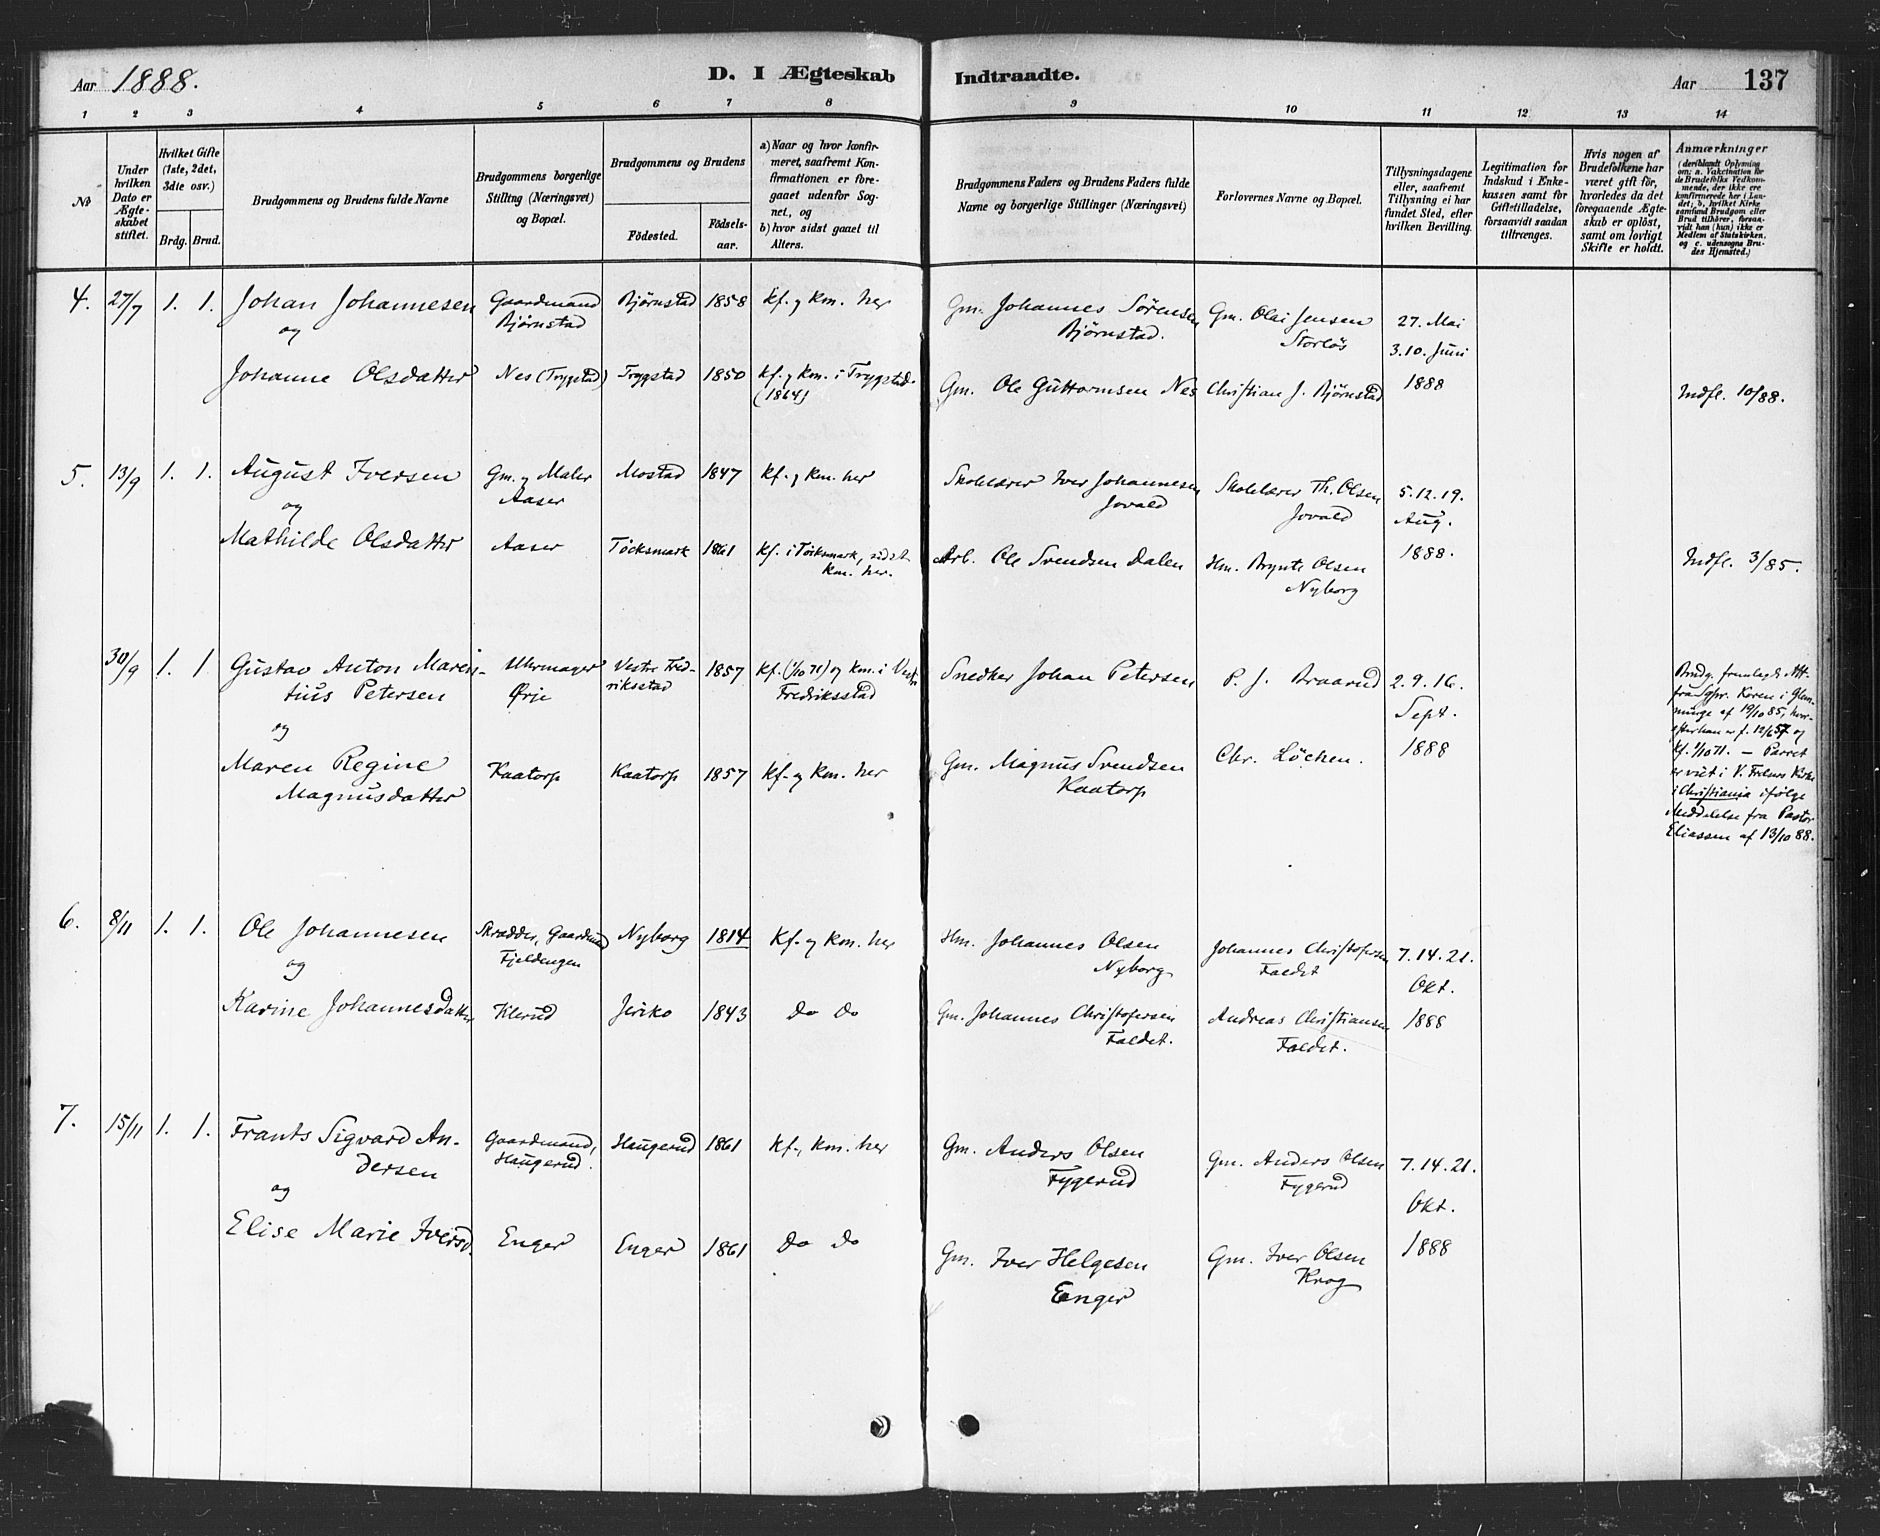 Aar 1888.
D. I Ægteskab Indtraadte.
Aar 137
1 2 3 4 5 6 7 8 9 10 11 12 13 14
No
Under hvilken Dato er Ægteskabet stiftet.
Hvilket Gifte (1ste, 2det, 3die osv.)
Brdg. Brud.
Brudgommens og Brudens fulde Navne
Brudgommens borgerlige Stilling (Næringsvei) og Bopæl.
Brudgommens og Brudens
Födested.
Födselsaar.
a) Naar og hvor konfirmeret, saafremt Konfirmationen er foregaaet udenfor Sognet, og
b) hvor sidst gaaet til Alters.
Brudgommens Faders og Brudens Faders fulde Navne og borgerlige Stillinger (Næringsvei)
Forlovernes Navne og Bopæl.
Tillysningsdagene eller, saafremt Tillysning ei har fundet Sted, efter hvilken Bevilling.
Legitimation for Indskud i Enkekassen samt for Giftetilladelse, forsaavidt saadan tiltrænges.
Hvis nogen af Brudefolkene har været gift för, hvorledes da det foregaaende Ægteskab er oplöst, samt om lovligt Skifte er holdt.
Anmærkninger
(deriblandt Oplysning om: a. Vakcination for de Brudefolks Vedkommende, der ikke ere konfirmerede her i Landet; b. hvilket Kirkesamfund Brudgom eller Brud tilhörer, forsaavidt han (hun) ikke er Medlem af Statskirken, og c. udensogns Brudes Hjemsted.)
4. 27/7 1. 1. Johan Johannesen Gaardmand Bjørnstad 1858 kf. og km. her Gm. Johannes Sørensen Gm. Olai Jensen 27. Mai
og Bjørnstad Bjørnstad. Storløs 3.10. Juni
Johanne Olsdatter Nes (Trygstad) Trygstad 1850 kf. og km. i Trygstad. Gm. Ole Guttormsen Nes Christian J. Bjørnstad 1888 Indfl. 10/88.
(1864)
5. 13/9 1. 1. August Iversen Gm. og Maler Mostad 1847 kf. og km. her Skolelærer Iver Johannesen Skolelærer Th. Olsen 5.12.19.
og Aaser Jovald Jovald Aug.
Mathilde Olsdatter Aaser Töcksmark 1861 kf. i Töcksmark, sidst Arb. Ole Svendsen Dalen Hm. Brynte Olsen 1888. Indfl. 3/85.
km. her. Nyborg
30/9 1. 1 Gustav Anton Maren- Uhrmager Vestre Fred- 1857 kf. (1/10 71) og km. i Vestre Snedker Johan Petersen P. J. Braarud 2.9.16.
tius Petersen Ørje riksstad Fredriksstad Sept.
og
Maren Regine Kaatorp Kaatorp 1857 kf. og km. her Gm. Magnus Svendsen Chr. Löchen. 1888
Magnusdatter Kaatorp
Brudg. fremlagde Att.
fra Sgpr. Koren i Glem-
minge af 19/10 85, hvor-
efter han er f. 12/6 57 og
kf. 1/10 71. — Parret
er viet i V. Frelsers Kirke
i Christiania ifølge
Meddelelse fra Pastor
Eliassen af 13/10 88.
6. 8/11 1. 1. Ole Johannesen Skrædder, Gaardmd Nyborg 1814 kf. og km. her Hm. Johannes Olsen Johannes Christofersen 7.14.21.
og Fjeldengen Nyborg Faldet Okt.
Karine Johannesdatter Klerud Jeriko 1843 Do Do Gm. Johannes Christofersen Andreas Christiansen 1888
Faldet. Faldet.
7. 15/11 1. 1. Frants Sigvard An- Gaardmand, Haugerud 1861 kf., km. her Gm. Anders Olsen Gm. Anders Olsen 7.14.21.
dersen Haugerud. Fygerud Fygerud
og Okt.
Elise Marie Iversd. Enger Enger 1861 Do Do Gm. Iver Helgesen Gm. Iver Olsen 1888
Enger Krog